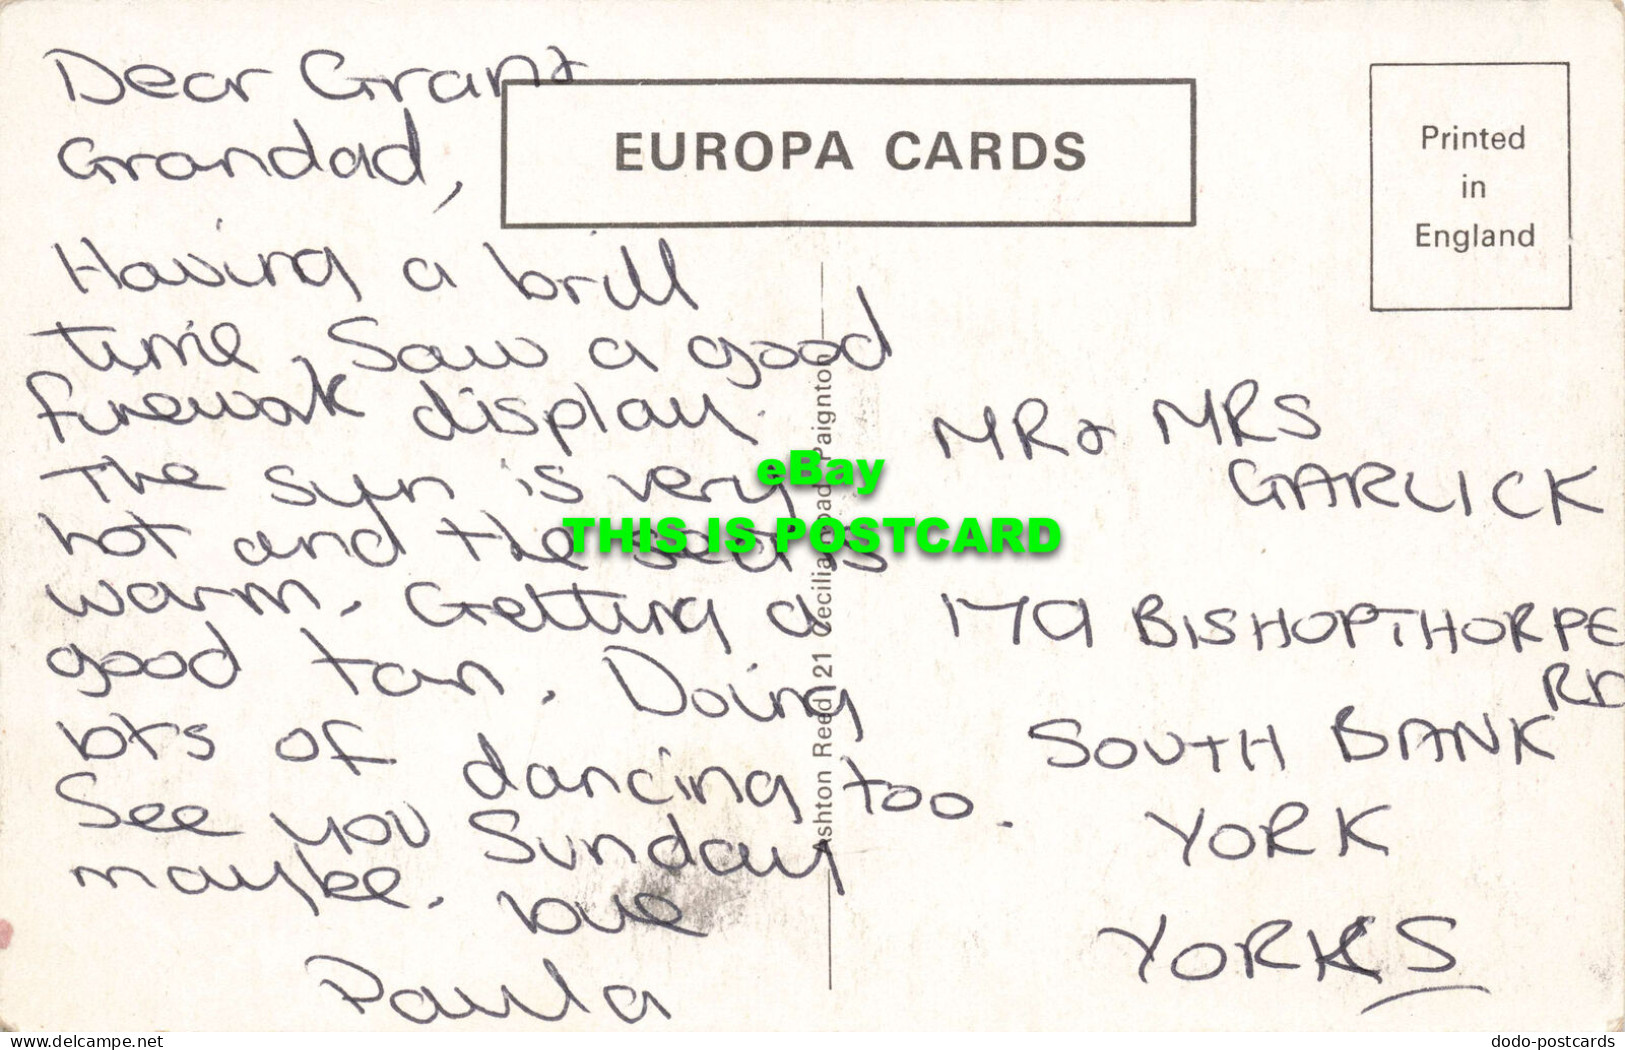 Dear Gran &
Grandad,
Having a brill
time. Saw a good
firework display.
The sun is very
hot and the sea is
warm. Getting a
good tan. Doing
lots of dancing too.
See you Sunday
maybe. love
Paula
EUROPA CARDS
Printed
in
England
MR & MRS
GARLICK
179 BISHOPTHORPE
RD
SOUTH BANK
YORK
YORKS
Ashton Reed, 21 Cecilia Road, Paignton
eBay
THIS IS POSTCARD
delcampe.net
dodo-postcards